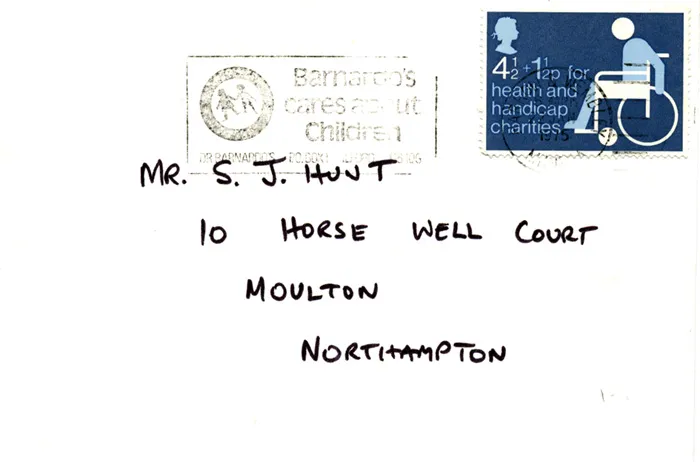 Barnardo's
cares about
Children
DR BARNARDO'S
4½+1½p for
health and
handicap
charities
1975
MR. S. J. HUNT
10 HORSE WELL COURT
MOULTON
NORTHAMPTON